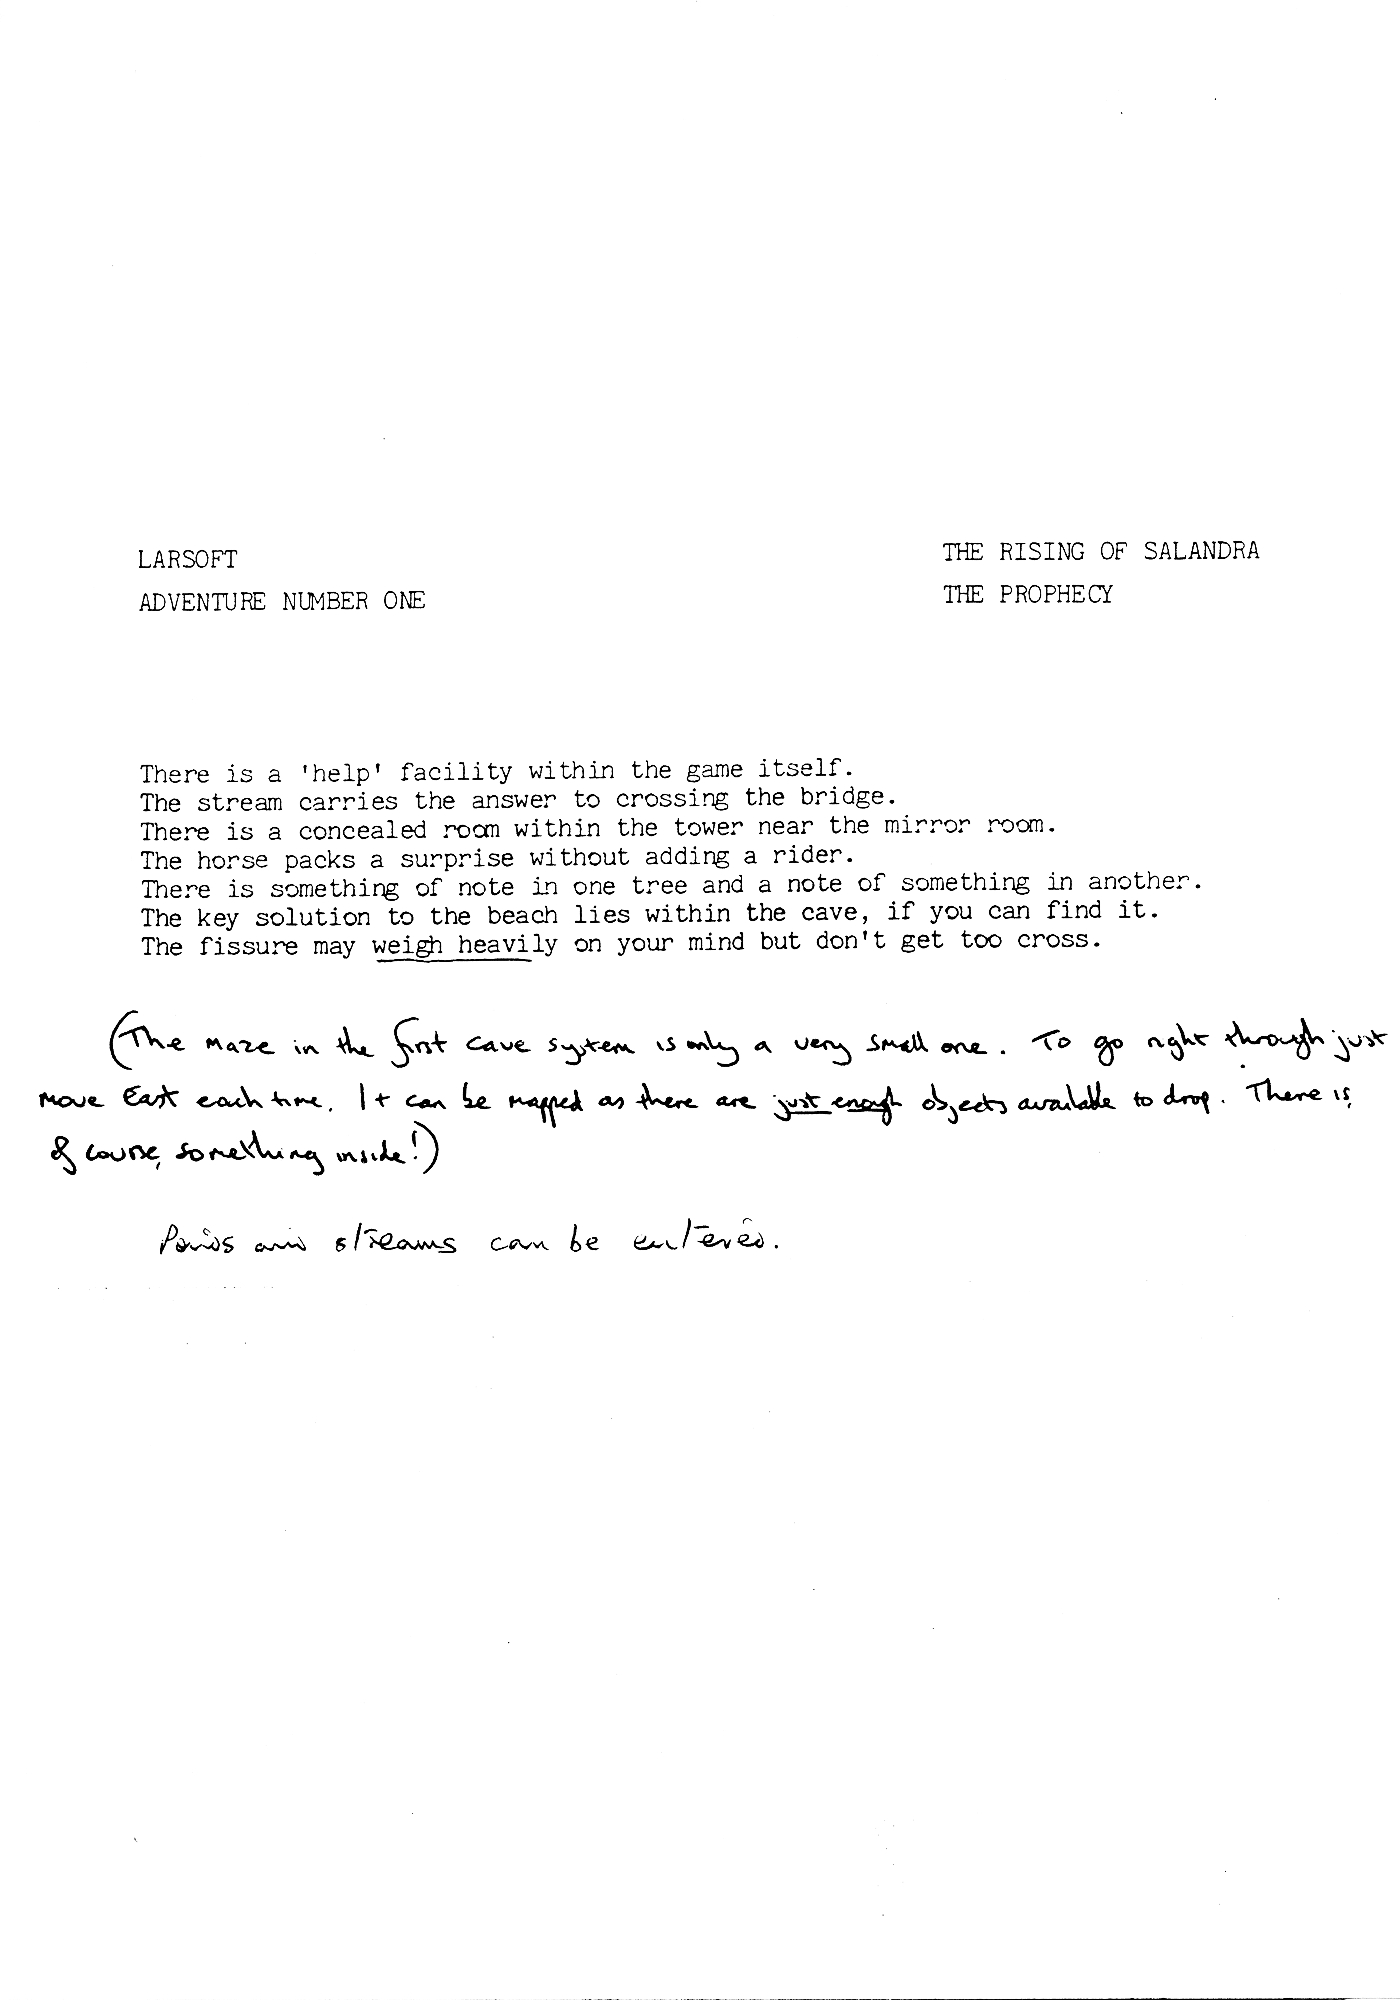 LARSOFT
ADVENTURE NUMBER ONE
THE RISING OF SALANDRA
THE PROPHECY
There is a 'help' facility within the game itself.
The stream carries the answer to crossing the bridge.
There is a concealed room within the tower near the mirror room.
The horse packs a surprise without adding a rider.
There is something of note in one tree and a note of something in another.
The key solution to the beach lies within the cave, if you can find it.
The fissure may weigh heavily on your mind but don't get too cross.
(The maze in the first cave system is only a very small one. To go right through just
move East each time. It can be mapped as there are just enough objects available to drop. There is,
of course, something inside!)
Ponds and streams can be entered.